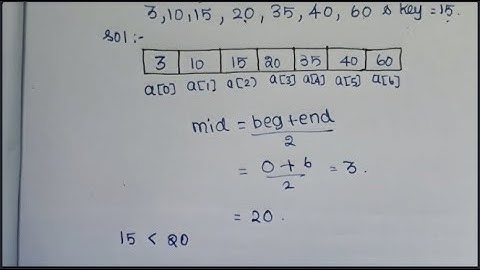 3,10,15, 20, 35, 40, 60 & key =15.
Sol:-
3 10 15 20 35 40 60
a[0] a[1] a[2) a[3] a[4] a[5] a[6]
mid = beg+end
2
= 0+6 = 3.
2
= 20.
15 < 20